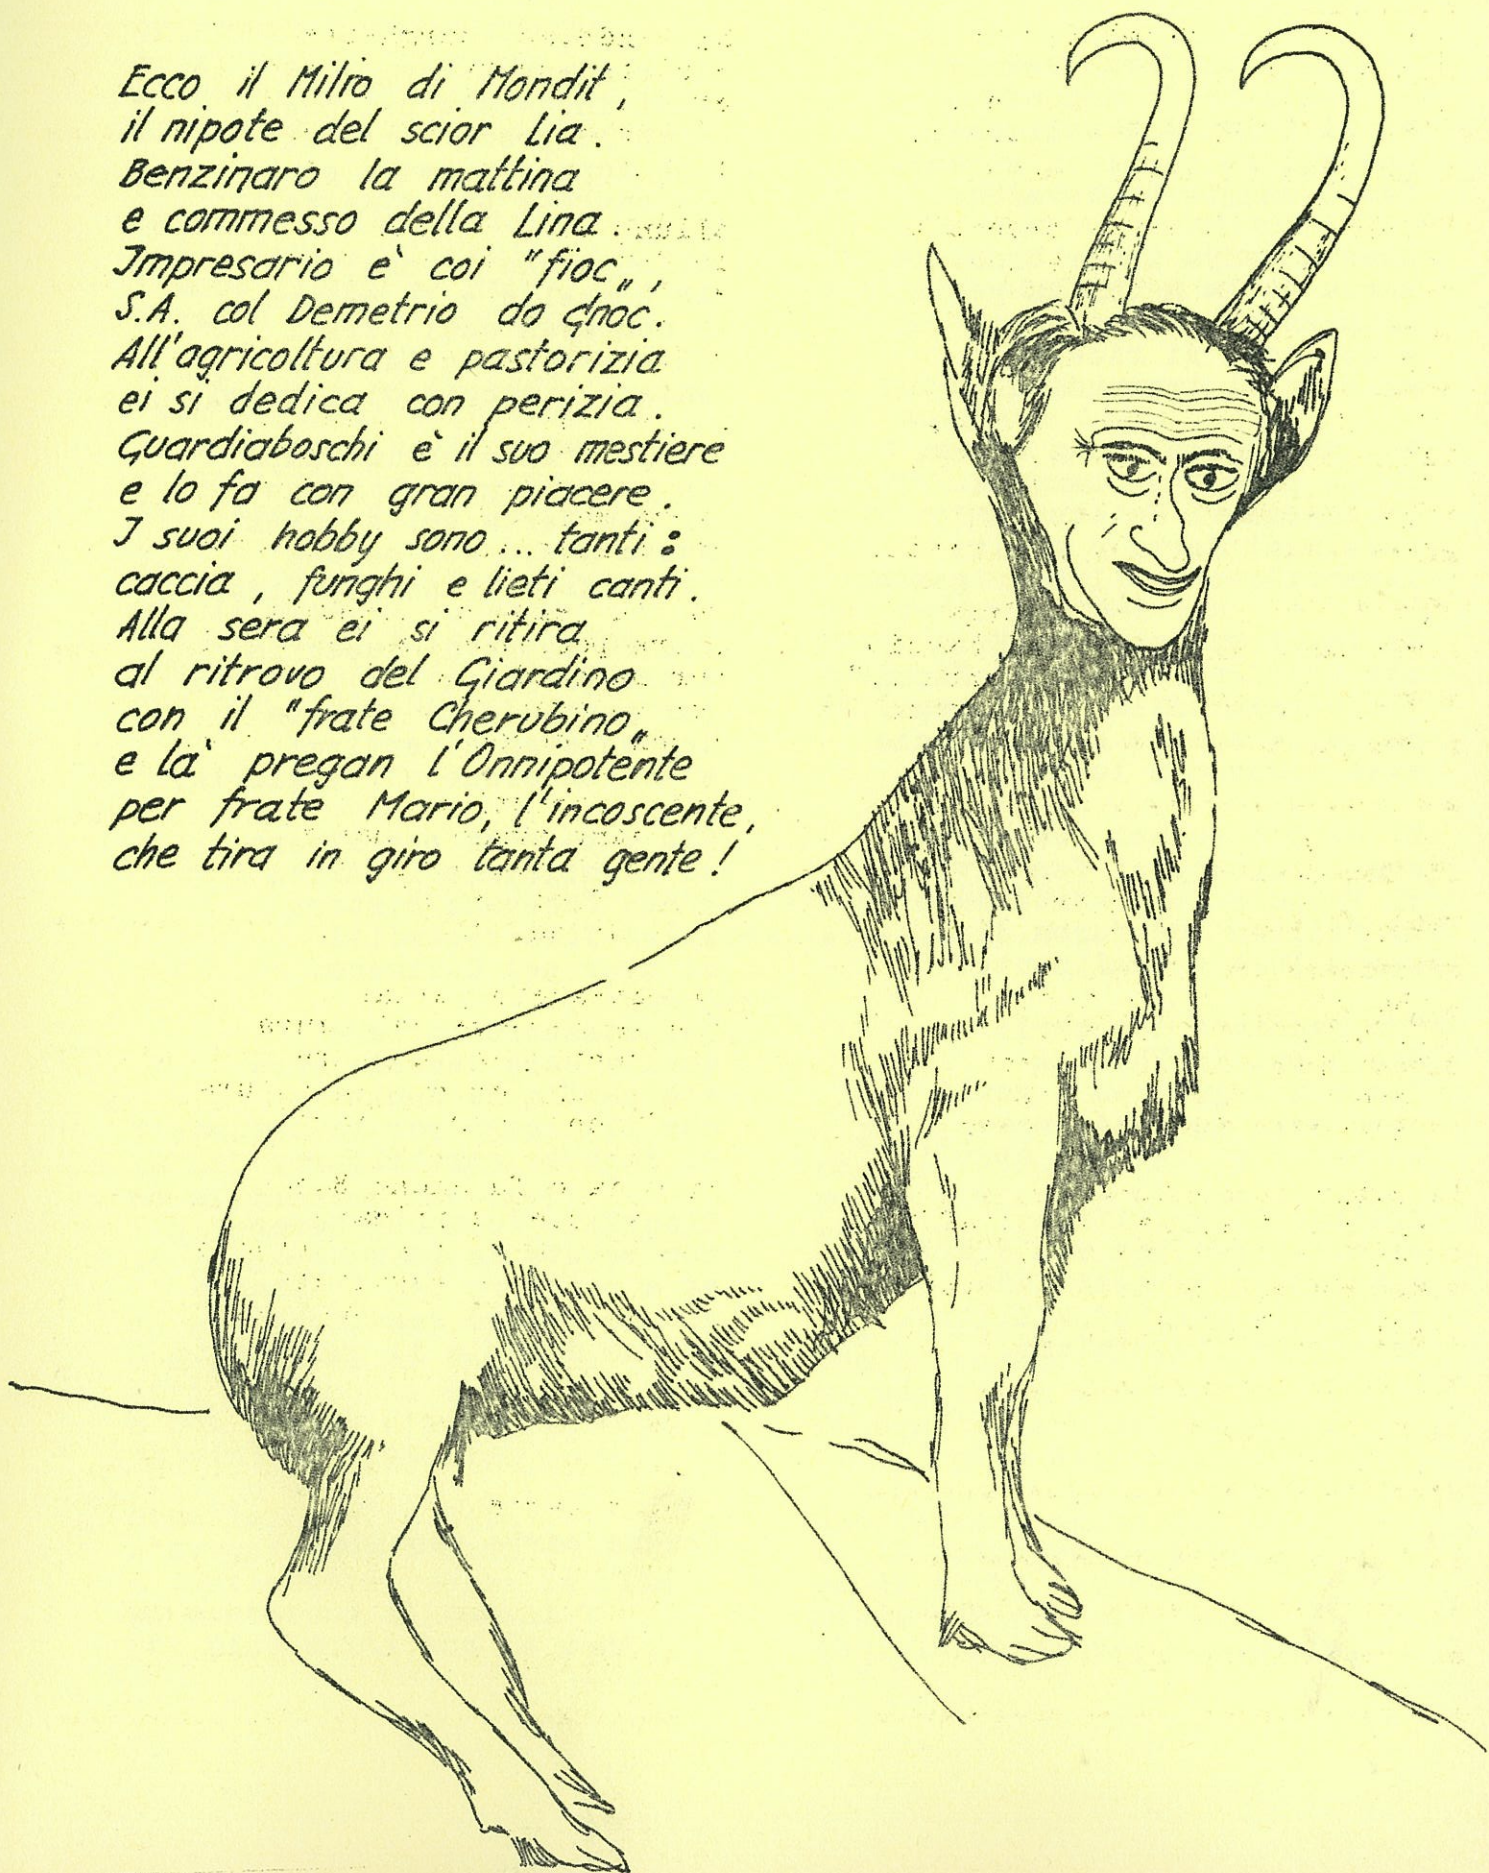 Ecco il Milio di Mondit,
il nipote del scior Lia.
Benzinaro la mattina
e commesso della Lina.
Impresario è coi "fioc",
S.A. col Demetrio do gnoc.
All'agricoltura e pastorizia
ei si dedica con perizia.
Guardiaboschi è il suo mestiere
e lo fa con gran piacere.
I suoi hobby sono... tanti:
caccia, funghi e lieti canti.
Alla sera ei si ritira
al ritrovo del Giardino
con il "frate Cherubino"
e là pregan l'Onnipotente
per frate Mario, l'incoscente,
che tira in giro tanta gente!